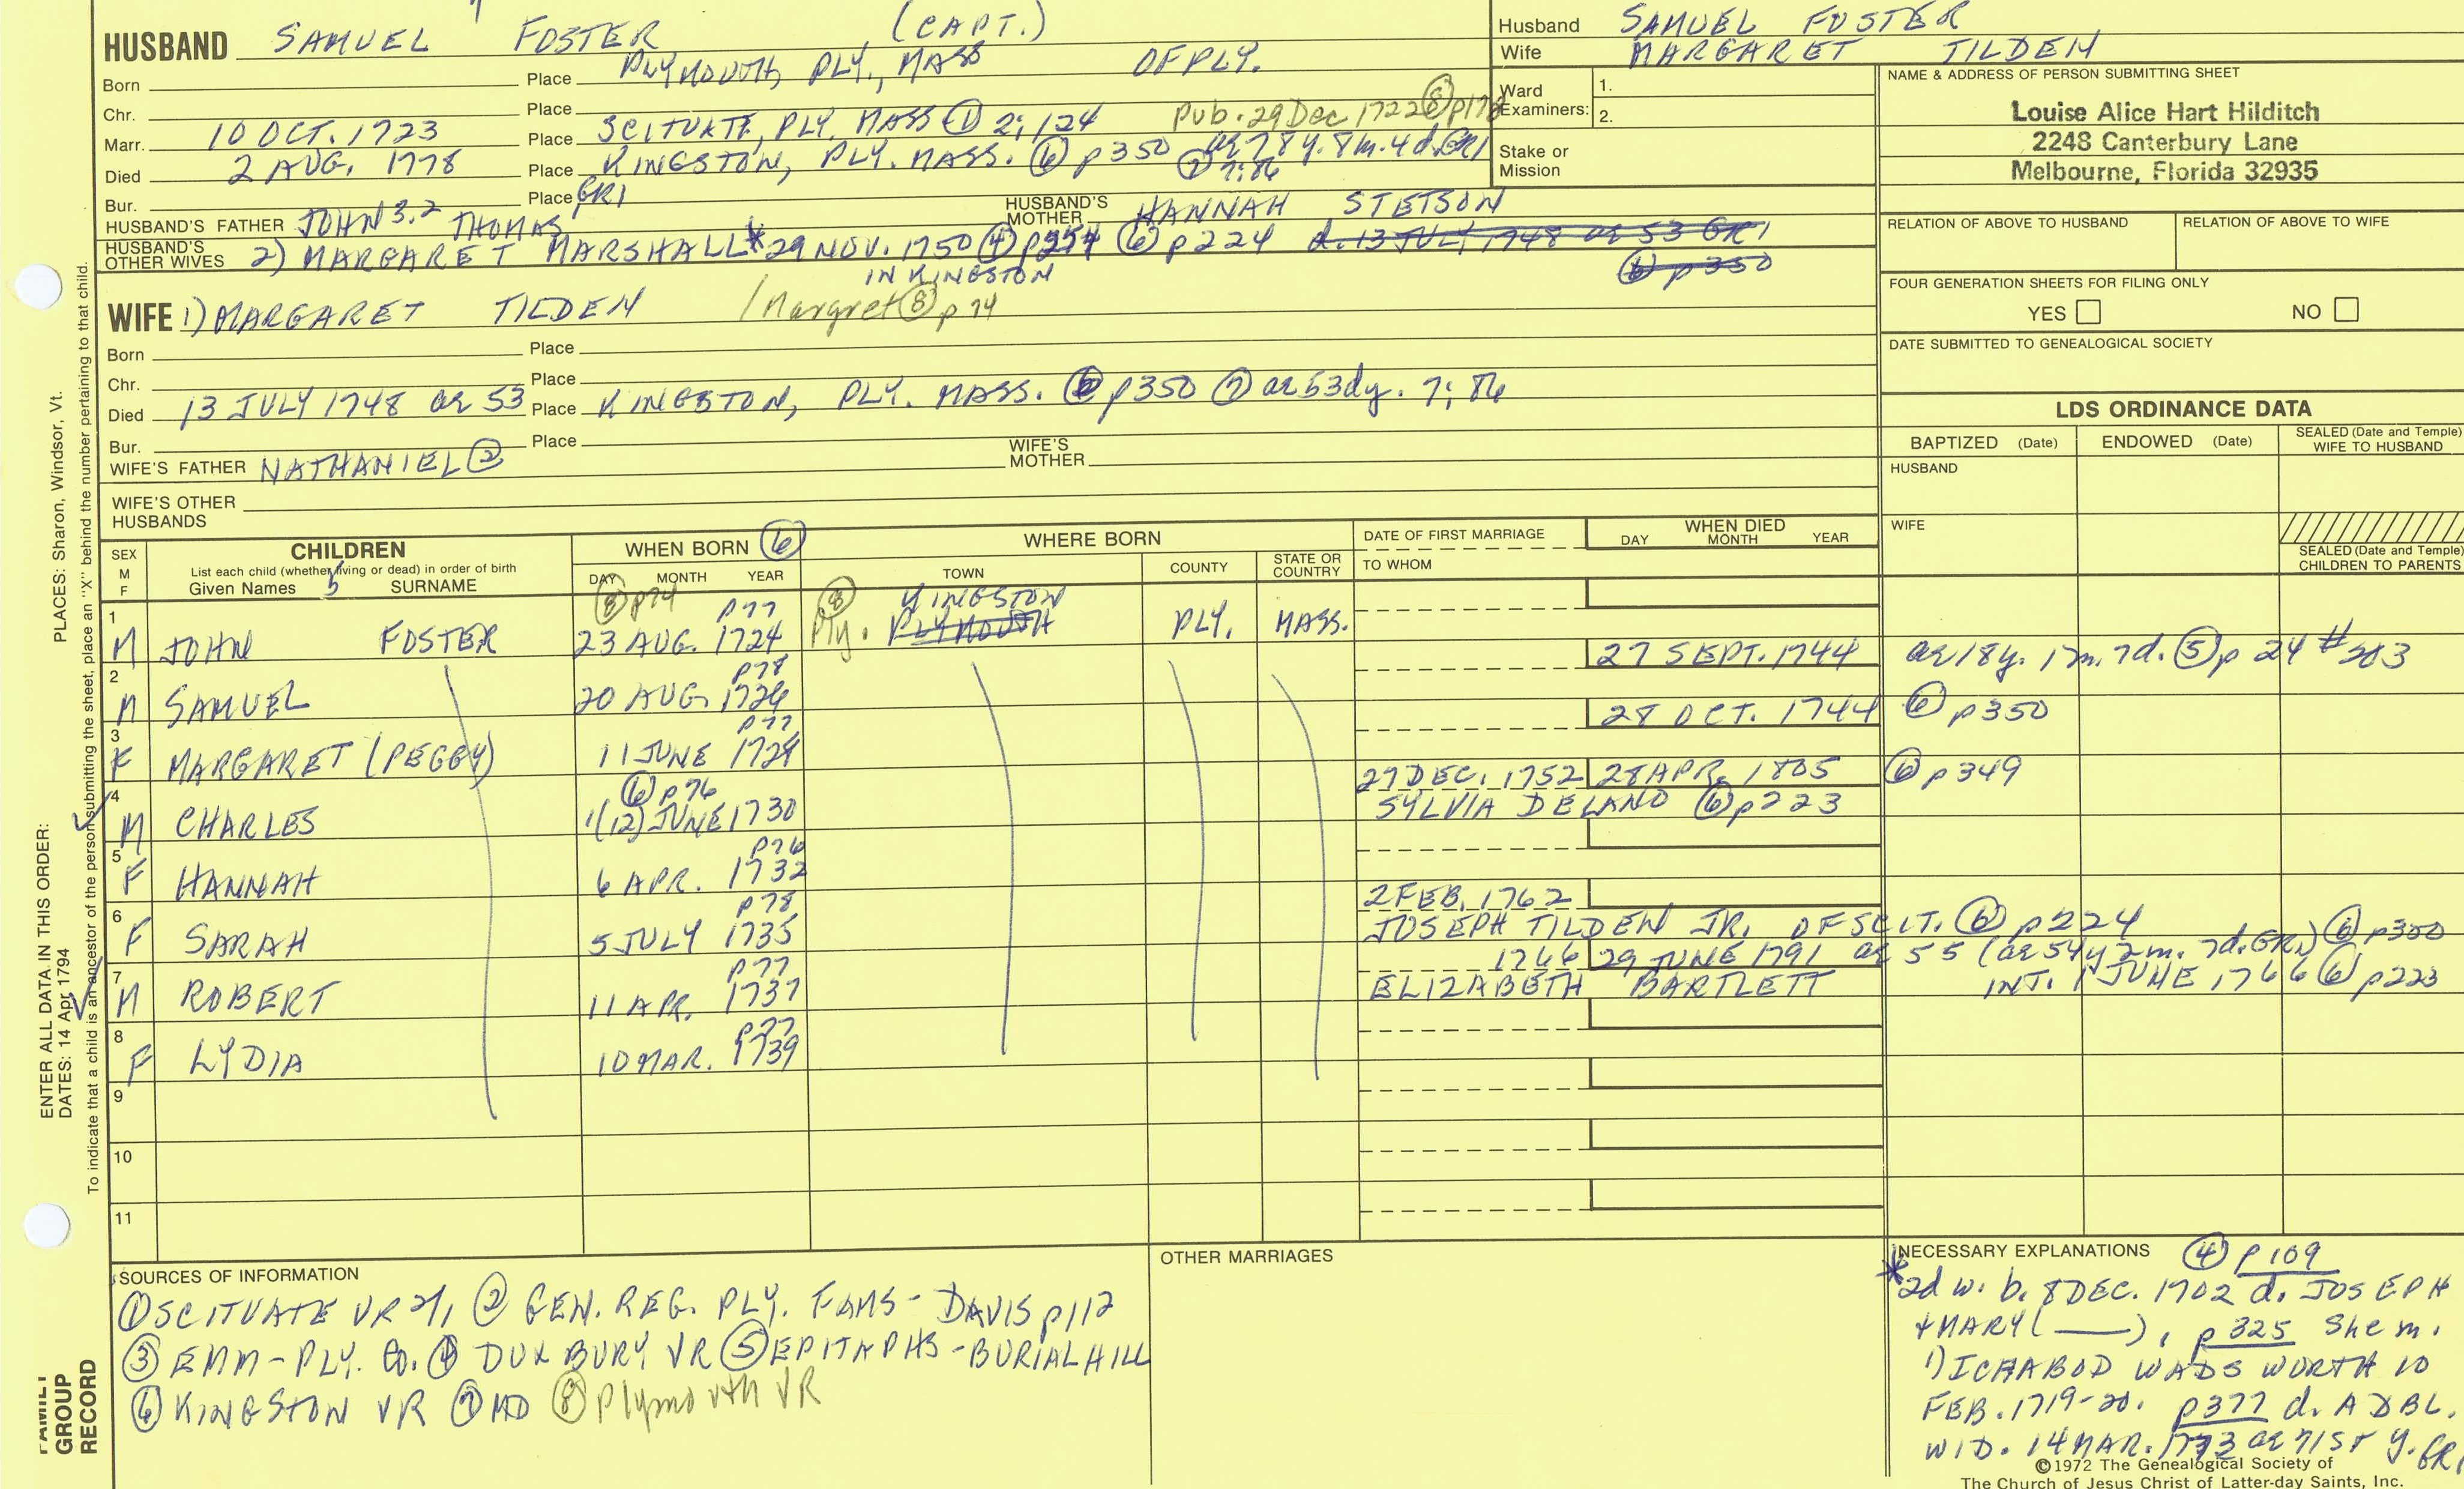 HUSBAND SAMUEL FOSTER (CAPT.)
Born Place PLYMOUTH, PLY., MASS OF PLY.
Chr. Place
Marr. 10 OCT. 1723 Place SCITUATE, PLY. MASS ① 2; 124 Pub. 29 Dec 1722 ⑧ p178
Died 2 AUG. 1778 Place KINGSTON, PLY. MASS. ⑥ p350 ae 78 y. 8m. 4d. GR1
⑦ 7:86
Bur. Place GR1
HUSBAND'S FATHER JOHN 3.2 THOMAS HUSBAND'S MOTHER HANNAH STETSON
HUSBAND'S OTHER WIVES 2) MARGARET MARSHALL * 29 NOV. 1750 ④ p254 ⑥ p224 d. 13 JULY 1748 ae 53 GR1
IN KINGSTON ⑥ p350
WIFE 1) MARGARET TILDEN /Margret ⑧ p74
Born Place
Chr. Place
Died 13 JULY 1748 ae 53 Place KINGSTON, PLY. MASS. ⑥ p350 ⑦ ae 53dy. 7; 86
Bur. Place
WIFE'S FATHER NATHANIEL ② WIFE'S MOTHER
WIFE'S OTHER HUSBANDS
Husband SAMUEL FOSTER
Wife MARGARET TILDEN
Ward Examiners: 1.
2.
Stake or Mission
NAME & ADDRESS OF PERSON SUBMITTING SHEET
Louise Alice Hart Hilditch
2248 Canterbury Lane
Melbourne, Florida 32935
RELATION OF ABOVE TO HUSBAND RELATION OF ABOVE TO WIFE
FOUR GENERATION SHEETS FOR FILING ONLY
YES NO
DATE SUBMITTED TO GENEALOGICAL SOCIETY
LDS ORDINANCE DATA
BAPTIZED (Date) ENDOWED (Date) SEALED (Date and Temple) WIFE TO HUSBAND
HUSBAND
WIFE
SEALED (Date and Temple) CHILDREN TO PARENTS
SEX M F
CHILDREN
List each child (whether living or dead) in order of birth
Given Names 5 SURNAME
WHEN BORN ⑥
DAY MONTH YEAR
WHERE BORN
TOWN COUNTY STATE OR COUNTRY
DATE OF FIRST MARRIAGE
TO WHOM
WHEN DIED
DAY MONTH YEAR
⑧ p74 p77 ⑧ KINGSTON
1 M JOHN FOSTER 23 AUG. 1724 Ply. PLYMOUTH PLY. MASS.
p78 27 SEPT. 1744 ae 18y. 1m. 7d. ⑤ p 24 #303
2 M SAMUEL 20 AUG. 1726
p77 28 OCT. 1744 ⑥ p350
3 F MARGARET (PEGGY) 11 JUNE 1728
⑥ p76 27 DEC. 1752 28 APR. 1805 ⑥ p349
4 M CHARLES 1(12) JUNE 1730 SYLVIA DELANO ⑥ p223
p76
5 F HANNAH 6 APR. 1732
p78 2 FEB. 1762
6 F SARAH 5 JULY 1735 JOSEPH TILDEN JR. OF SCIT. ⑥ p224
p77 1766 29 JUNE 1791 ae 55 (ae 54y 2m. 7d. GR1) ⑥ p350
7 M ROBERT 11 APR. 1737 ELIZABETH BARTLETT INT. 1 JUNE 1766 ⑥ p223
p77
8 F LYDIA 10 MAR. 1739
9
10
11
SOURCES OF INFORMATION
① SCITUATE VR 2/1 ② GEN. REG. PLY. FAMS - DAVIS p112
③ EMM - PLY. Co. ④ DUXBURY VR ⑤ EPITAPHS - BURIAL HILL
⑥ KINGSTON VR ⑦ MD ⑧ Plymouth VR
OTHER MARRIAGES
NECESSARY EXPLANATIONS ④ p 109
* 2d w. b. 8 DEC. 1702 d. JOSEPH
+ MARY ( ___ ), p 325 She m.
1) ICHABOD WADSWORTH 10
FEB. 1719-20. p377 d. A DBL.
WID. 14 MAR. 1773 ae 71ST y. GR1
©1972 The Genealogical Society of
The Church of Jesus Christ of Latter-day Saints, Inc.
PLACES: Sharon, Windsor, Vt.
ENTER ALL DATA IN THIS ORDER:
DATES: 14 Apr 1794
To indicate that a child is an ancestor of the person submitting the sheet, place an "X" behind the number pertaining to that child.
FAMILY
GROUP
RECORD